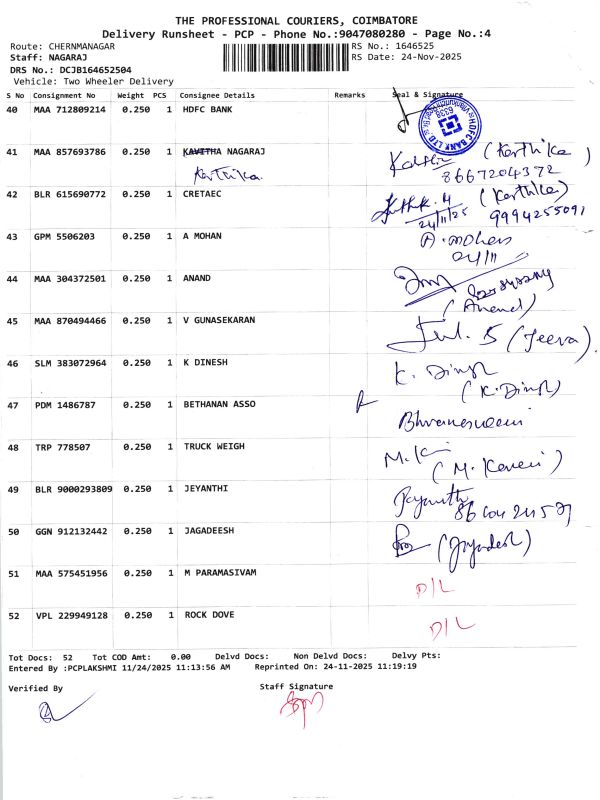 THE PROFESSIONAL COURIERS, COIMBATORE
Delivery Runsheet - PCP - Phone No.:9047080280 - Page No.:4
Route: CHERNMANAGAR RS No.: 1646525
Staff: NAGARAJ RS Date: 24-Nov-2025
DRS No.: DCJB164652504
Vehicle: Two Wheeler Delivery
S No Consignment No Weight PCS Consignee Details Remarks Seal & Signature
40 MAA 712809214 0.250 1 HDFC BANK
HDFC BANK LTD
41 MAA 857693786 0.250 1 KAVITHA NAGARAJ (Karthika)
Karthika 8667204372
42 BLR 615690772 0.250 1 CRETAEC (Karthika)
24/11/25 9994255091
43 GPM 5506203 0.250 1 A MOHAN A. mohan
24/11
44 MAA 304372501 0.250 1 ANAND
(Anand)
45 MAA 870494466 0.250 1 V GUNASEKARAN (Jeeva)
46 SLM 383072964 0.250 1 K DINESH K. Dinesh
(K. Dinesh)
47 PDM 1486787 0.250 1 BETHANAN ASSO Bhuvaneswari
48 TRP 778507 0.250 1 TRUCK WEIGH
49 BLR 9000293809 0.250 1 JEYANTHI Jayanthi
50 GGN 912132442 0.250 1 JAGADEESH
51 MAA 575451956 0.250 1 M PARAMASIVAM D/L
52 VPL 229949128 0.250 1 ROCK DOVE D/L
Tot Docs: 52 Tot COD Amt: 0.00 Delvd Docs: Non Delvd Docs: Delvy Pts:
Entered By :PCPLAKSHMI 11/24/2025 11:13:56 AM Reprinted On: 24-11-2025 11:19:19
Verified By Staff Signature